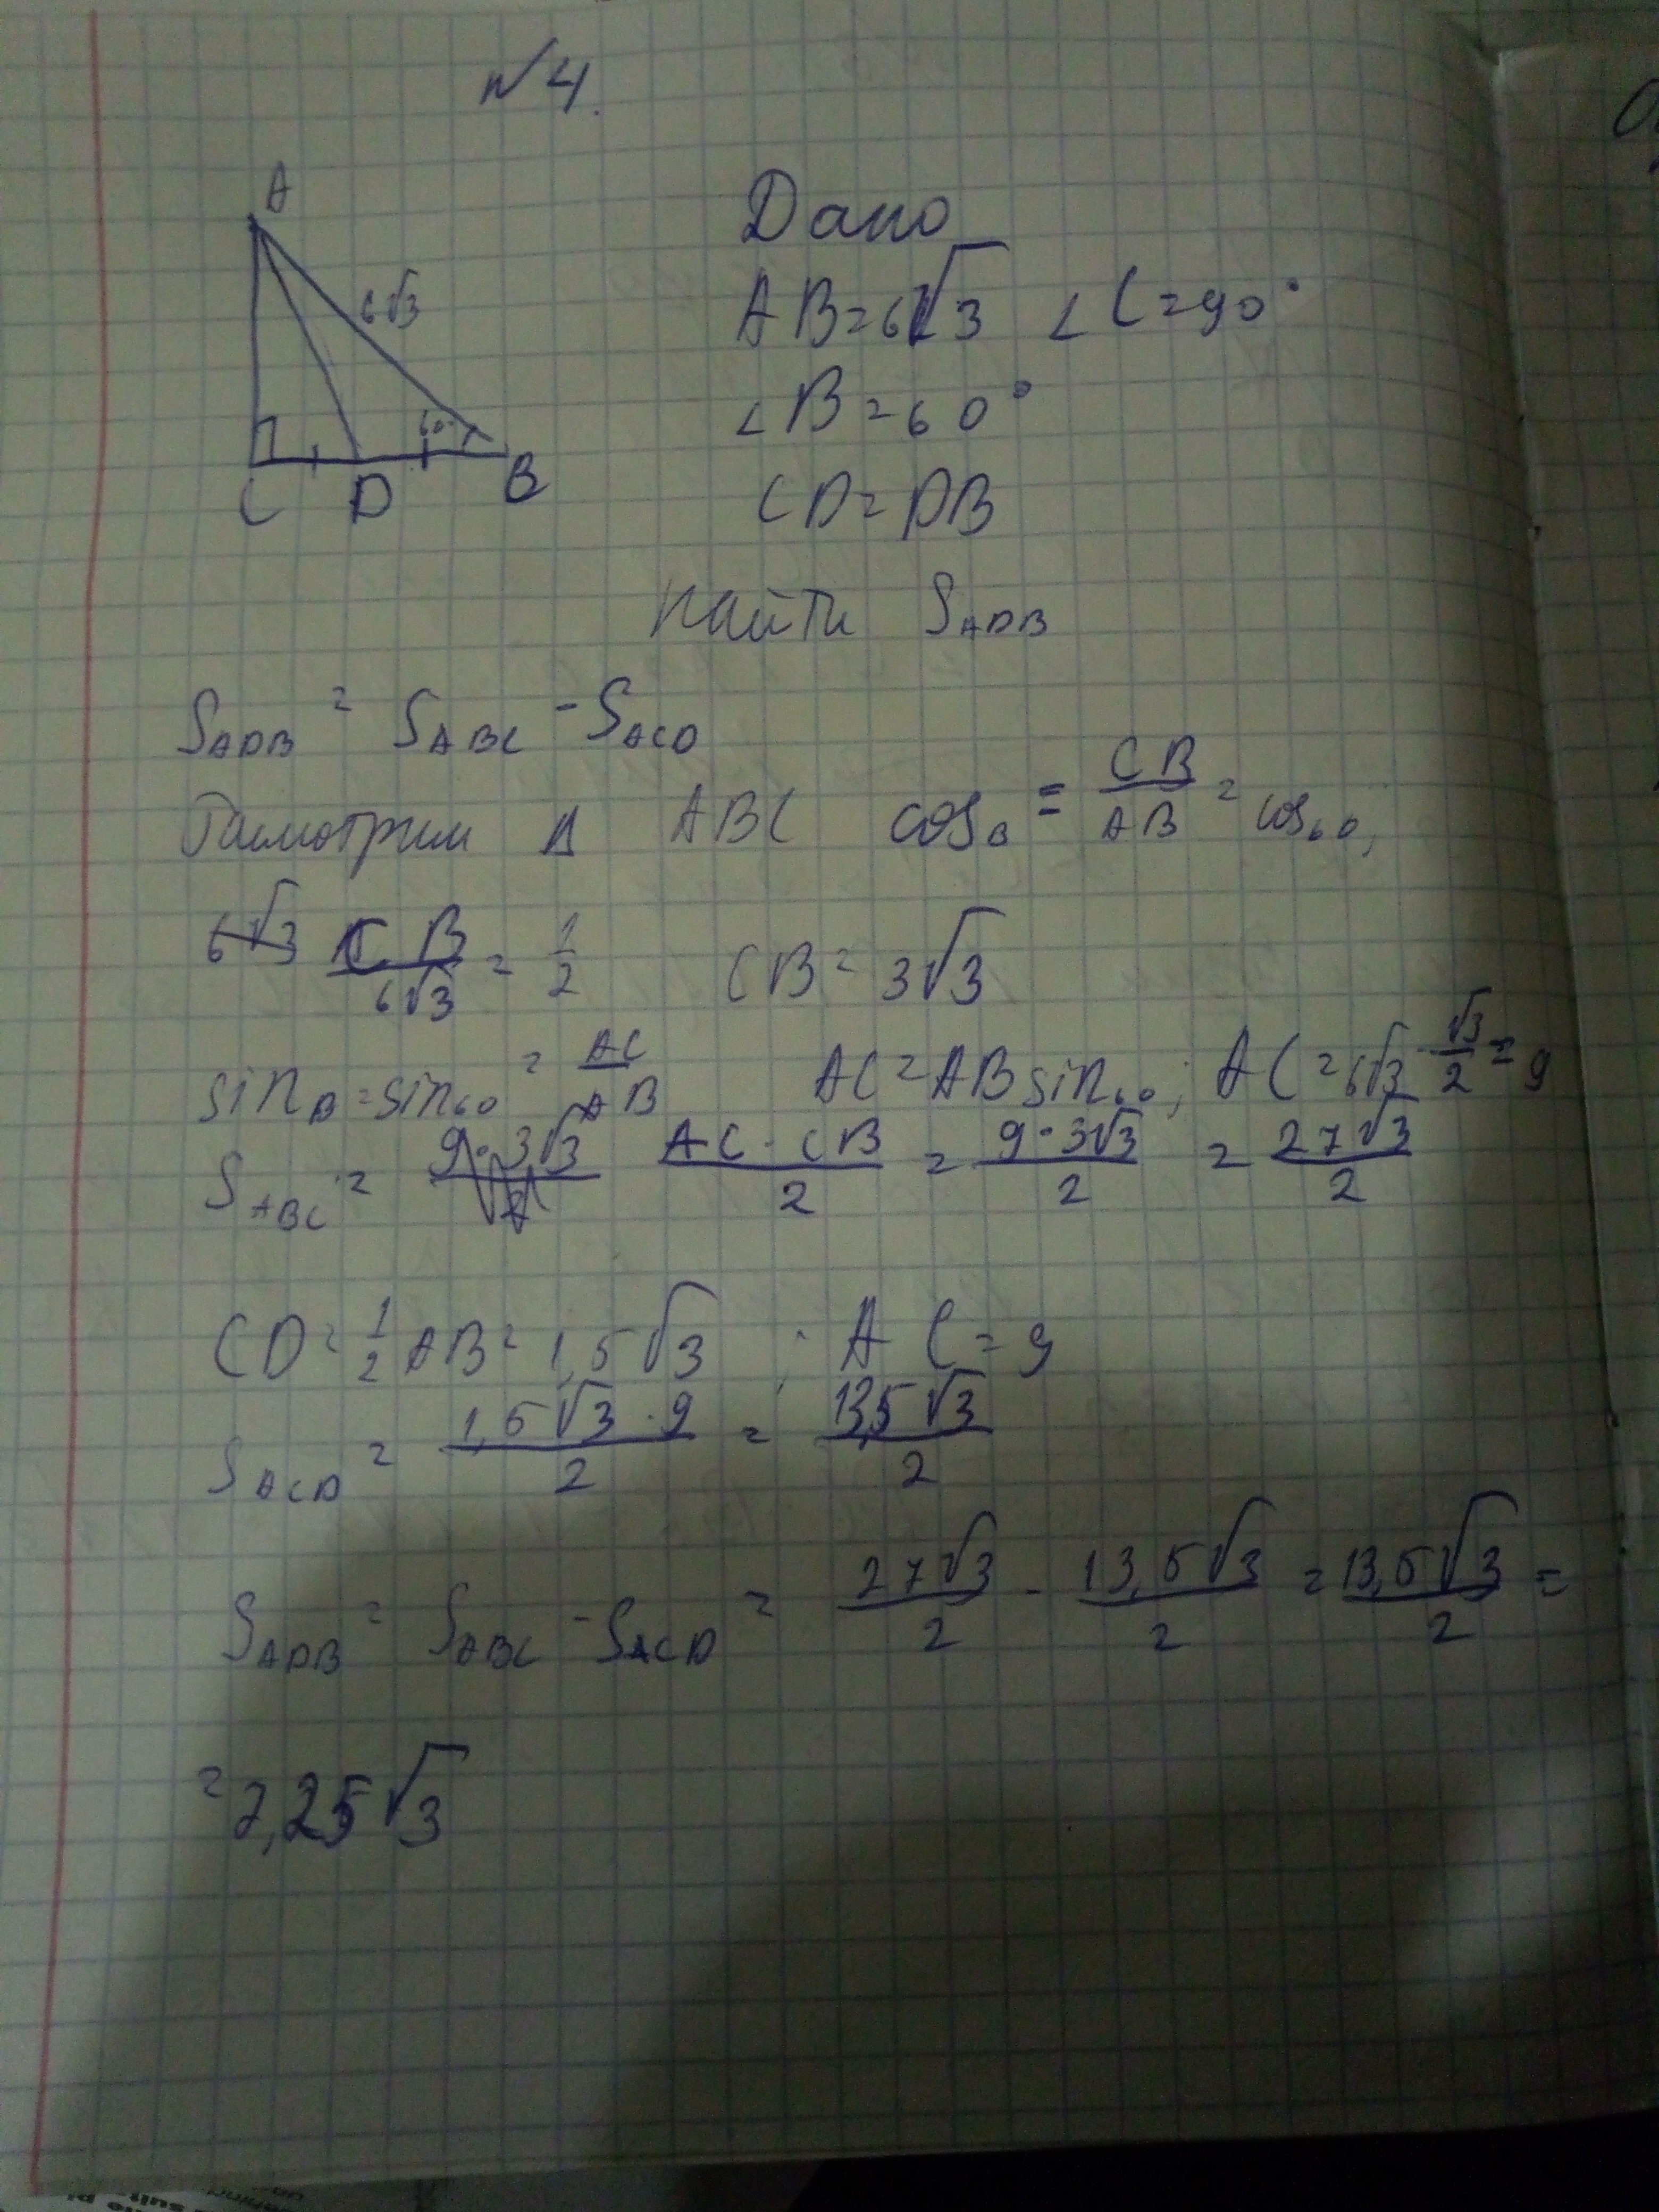 №4.
A
6√3
60°
C D B
Дано
AB=6√3 ∠C=90°
∠B=60°
CD=DB
найти S_ADB
S_ADB = S_ABC - S_ACD
Рассмотрим Δ ABC cos_B = CB/AB = cos_60;
CB/6√3 = 1/2 CB=3√3
sin_B=sin_60 = AC/AB AC=AB sin_60; AC=6√3·√3/2=9
S_ABC = AC·CB/2 = 9·3√3/2 = 27√3/2
CD=1/2 AB=1,5√3 ; AC=9
S_ACD = 1,5√3·9/2 = 13,5√3/2
S_ADB = S_ABC - S_ACD = 27√3/2 - 13,5√3/2 = 13,5√3/2 =
=7,25√3